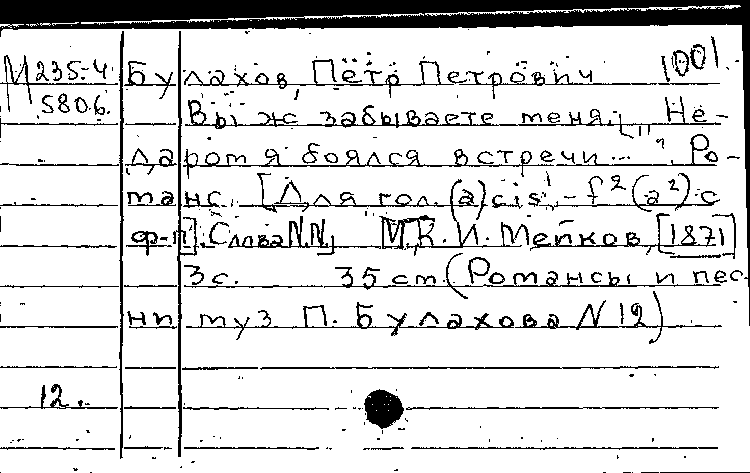 М 235-4 Булахов, Пётр Петрович 1001
580б. Вы ж забываете меня. [„Не-
даром я боялся встречи..." Ро-
манс. [Для гол. (a) cis¹-f²(a²) с
ф-п]. Слова N.N.] М., К. И. Мейков, [1871]
3с. 35 см (Романсы и пес
ни муз П. Булахова N 12)
12.